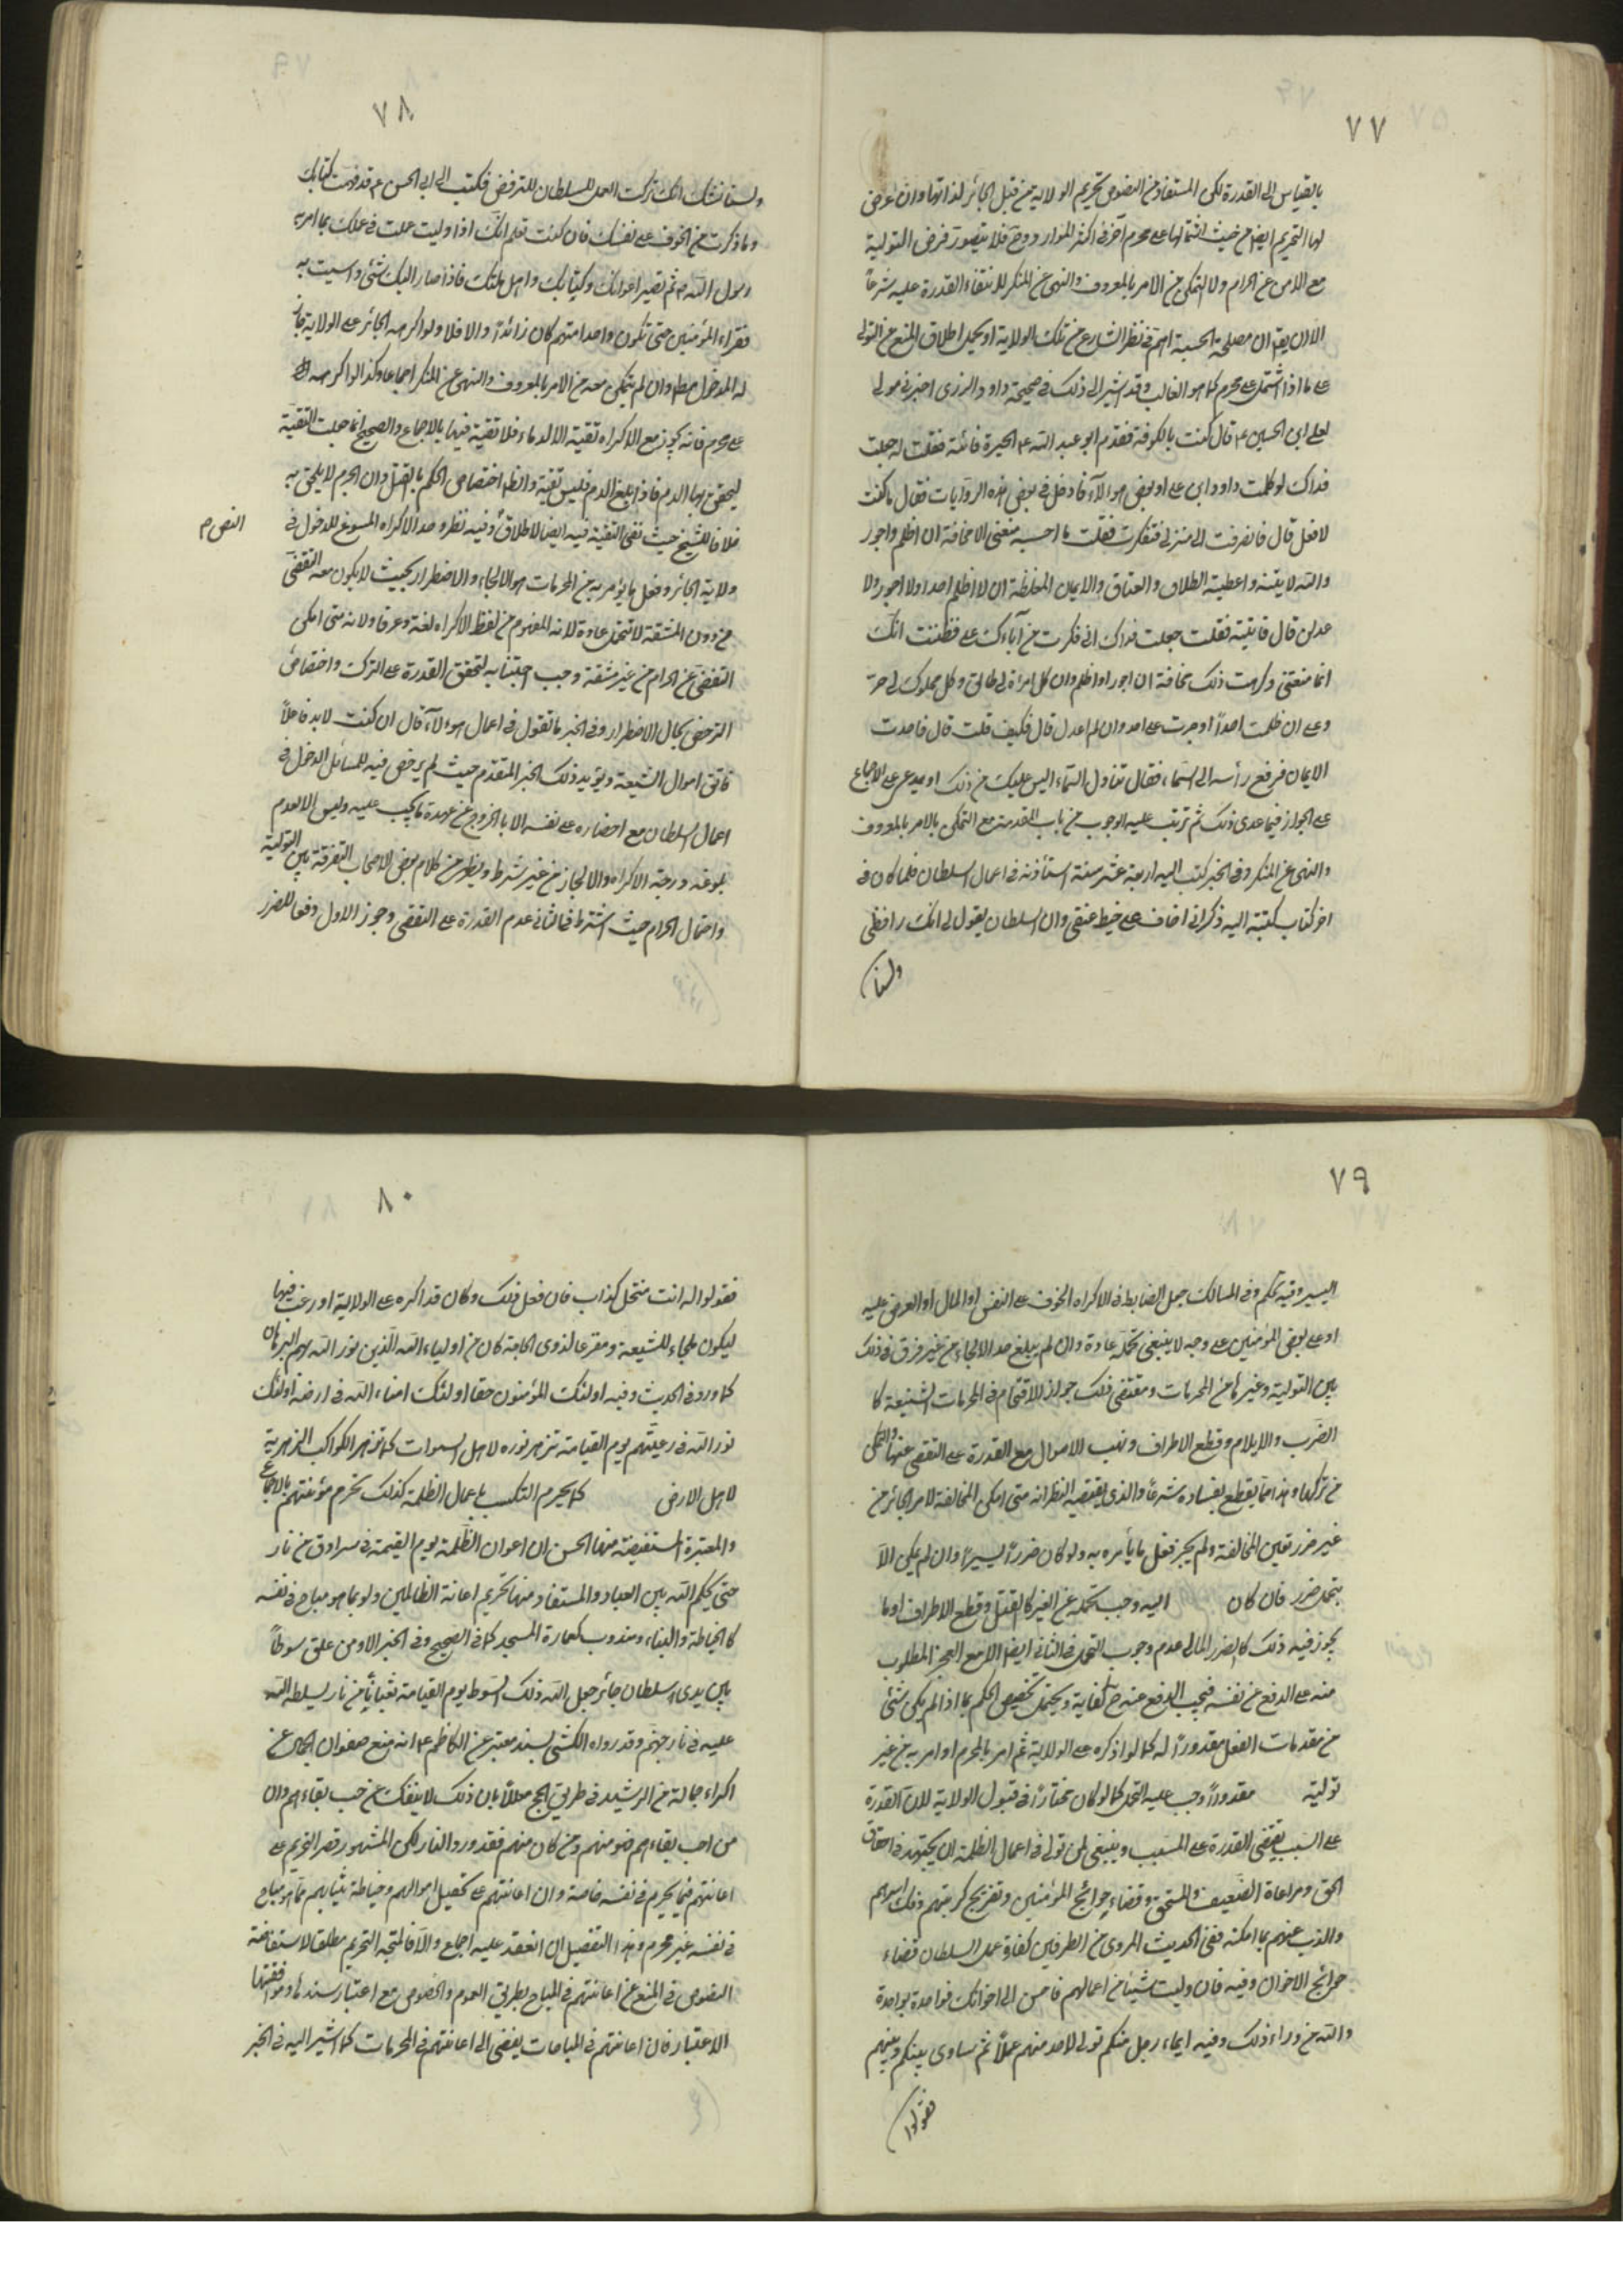 ٧٧
بالقياس الى القدرة لكن المستفاد من النصوص تحريم الولاية من قبل الجائر لذاتها وان عرض
لها التحريم ايضا من حيث اشتمالها على محرم آخر في اكثر الموارد وح فلا يتصور فرض التولية
مع الامن عن الحرام ولا التمكن من الامر بالمعروف والنهى عن المنكر لانتفاء القدرة عليه شرعاً
الا ان يقم ان مصلحة الحسبة اهم في نظر الشارع من تلك الولاية او يحمل اطلاق المنع من التولي
على ما اذا اشتمل على محرم كما هو الغالب وقد اشير الى ذلك في صحيحة داود الزربى اخبرني مولى
لعلى ابن الحسين ع قال كنت بالكوفة فقدم ابو عبد الله ع الحيرة فاتيته فقلت له جعلت
فداك لو كلمت داود ابن على او بعض هؤلآء فادخل في بعض هذه الولايات فقال ما كنت
لافعل قال فانصرفت الى منزلى فتفكرت فقلت ما احسبه منعنى الا مخافة ان اظلم واجور
والله لاتينه واعطينه الطلاق والعتاق والايمان المغلظة ان لا اظلم احدا ولا اجور ولا
عدلن قال فاتيته فقلت جعلت فداك انى فكرت في آبائك على فظننت انك
انما منعتنى وكرهت ذلك مخافة ان اجور او اظلم وان كل امراة لى طالق وكل مملوك لى حر
وعلى ان ظلمت احداً او جرت على احد وان لم اعدل قال فكيف قلت قال فاعدت
الايمان فرفع رأسه الى السماء فقال تناول السماء اليس عليك من ذلك او يدعى على الاجماع
على الجواز فيما عدى ذلك ثم ترتب عليه الوجوب من باب المقدمة مع التمكن بالامر بالمعروف
والنهى عن المنكر وفي الخبر كتب اليه اربعة عشر سنة استأذنه في اعمال السلطان فلما كان في
اخر كتاب كتبته اليه ذكر انى اخاف على خيط عنقى وان السلطان يقول لى انك رافضى
ولسنا
٧٨
ولسنا نشك انك تركت العمل للسلطان للترفض فكتب الى ابى الحسن ع قد فهمت كتابك
وما ذكرت من الخوف على نفسك فان كنت تعلم انك اذا وليت عملت في عملك بما امر به
رسول الله ص ثم تصير اعوانك وكتابك واهل ملتك فاذا صار اليك شئ واسيت به
فقراء المؤمنين حتى تكون واحدا منهم كان ذا بذا والا فلا ولو اكرهه الجائر على الولاية جاز
له الدخول مطلقا وان لم يتمكن معه من الامر بالمعروف والنهى عن المنكر اجماعا وكذا لو اكرهه
على محرم فانه يجوز مع الاكراه تقية الا الدماء فلا تقية فيها بالاجماع والصحيح انما جعلت التقية
ليحقن بها الدم فاذا بلغ الدم فليس تقية والظاهر اختصاص الحكم بالقتل وان الجرح لا يلحق به
خلافا للشيخ حيث نفى التقية فيه ايضا لاطلاق وفيه نظر وحد الاكراه المسوغ للدخول في
النص م
ولاية الجائر وفعل ما يؤمر به من المحرمات هو الالجاء والاضطرار بحيث لا يكون معه التفصى
من دون المشقة لا تتحمل عادة لانه المفهوم من لفظ الاكراه لغة وعرفا ولانه متى امكن
التفصى عن الحرام من غير مشقة وجب اجتنابه لتحقق القدرة على الترك واختصاص
الترخص بحال الاضطرار وفي الخبر ما تقول في اعمال هؤلآء قال ان كنت لا بد فاعلاً
فاتق اموال الشيعة ويؤيد ذلك الخبر المتقدم حيث لم يرخص فيه للسائل الدخول في
اعمال السلطان مع احضاره على نفسه الا بالخروج عن عهدة ما يجب عليه وليس الا لعدم
بلوغه درجة الاكراه والا لجاز من غير شرط ويظهر من كلام بعض الاصحاب التفرقة بين التولية
واعمال الحرام حيث اشترط في الثانى عدم القدرة على التفصى وجوز الاول دفعا للضرر
٧٩
اليسير وفيه تحكم وفي المسالك جعل الضابط في الاكراه الخوف على النفس او المال او العرض عليه
او على بعض المؤمنين على وجه لا ينبغى تحمله عادة وان لم يبلغ حد الالجاء من غير فرق في ذلك
بين التولية وغيرها من المحرمات ومقتضى ذلك جواز الاقتحام في المحرمات الشنيعة كا
الضرب والايلام وقطع الاطراف ونهب الاموال مع القدرة على التفصى عنها والتمكن
من تركها وهذا مما يقطع بفساده شرعاً والذى يقتضيه النظر انه متى امكن المخالفة لامر الجائر من
غير ضرر تعين المخالفة ولم يجز فعل ما يأمره به ولو كان ضرراً يسيراً وان لم يكن الا
بتحمل ضرر فان كان اليه وجب تحمله عن الغير كالقتل وقطع الاطراف او ما
يجوز فيه ذلك كالضرر المالى عدم وجوب التحمل في الثانى ايضا الا مع العجز المطلوب
منه على الدفع عن نفسه فيجب الدفع عنه ح كفاية ويحتمل تخصيص الحكم بما اذا لم يكن شئ
من مقدمات الفعل مقدوراً له كما لو اكره على الولاية ثم امر بالمحرم او امر به من غير
تولية مقدوراً وجب عليه التحمل كما لو كان مختاراً في قبول الولاية لان القدرة
على السبب يقتضى القدرة على المسبب وينبغى لمن تولى في اعمال الظلمة ان يجتهد في احقاق
الحق ومراعاة الضعيف والمستحق وقضاء حوائج المؤمنين وتفريج كربتهم وفك اسرهم
والذب عنهم بما امكنه ففى الحديث المروى من الطرفين كفارة عمل السلطان قضاء
حوائج الاخوان وفيه فان وليت شيئا من اعمالهم فاحسن الى اخوانك فواحدة بواحدة
والله من وراء ذلك وفيه ايماء رجل منكم تولى لاحد منهم عملاً ثم ساوى بينكم وبينهم
فقولوا
٨٠
فقولوا له انت منتحل كذاب فان فعل ذلك وكان قد اكره على الولاية او رغب فيها
ليكون ملجاء للشيعة ومفرعا لذوى الحاجة كان من اولياء الله الذين نور الله بهم البرهان
كما ورد في الحديث وفيه اولئك المؤمنون حقا اولئك امناء الله في ارضه اولئك
نور الله في رعيتهم يوم القيامة تزهر نوره لاهل السموات كما تزهر الكواكب الزهرية
لاهل الارض كما يحرم التكسب باعمال الظلمة كذلك تحرم مؤنتهم بالاجماع
والمعتبرة المستفيضة منها الحسن ان اعوان الظلمة يوم القيمة في سرادق من نار
حتى يحكم الله بين العباد والمستفاد منها تحريم اعانة الظالمين ولو بما هو مباح في نفسه
كالخياطة والبناء ومندوب كعمارة المسجد كما في الصحيح وفي الخبر الا ومن علق سوطاً
بين يدى سلطان جائر جعل الله ذلك السوط يوم القيامة ثعباناً من نار يسلطه الله
عليه في نار جهنم وقد رواه الكشى بسند معتبر عن الكاظم ع انه منع صفوان الجمال عن
اكراء جماله من الرشيد في طريق الحج معللاً بان ذلك لا ينفك عن حب بقاءهم وان
من احب بقاءهم فهو منهم ومن كان منهم فقد ورد النار لكن المشهور قصر التحريم على
اعانتهم فيما يحرم في نفسه خاصة وان اعانتهم على تحصيل اموالهم وخياطة ثيابهم مما هو مباح
في نفسه غير محرم وهذا التفصيل ان انعقد عليه اجماع والا فالمتجه التحريم مطلقا لاستفاضة
النصوص في المنع عن اعانتهم في المباح بطريق العموم والخصوص مع اعتبار سندها وموافقتها
الاعتبار فان اعانتهم في المباحات يفضى الى اعانتهم في المحرمات كما اشير اليه في الخبر